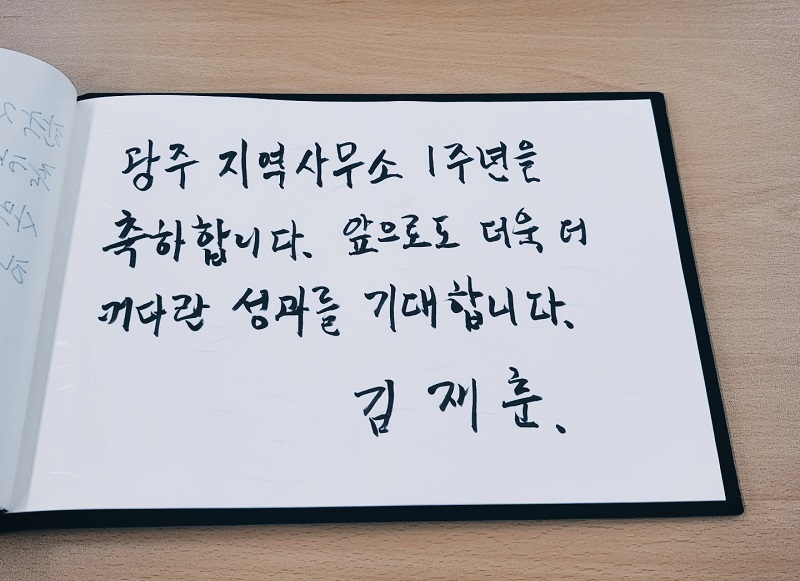 광주 지역사무소 1주년을
축하합니다. 앞으로도 더욱 더
커다란 성과를 기대합니다.
김재훈.